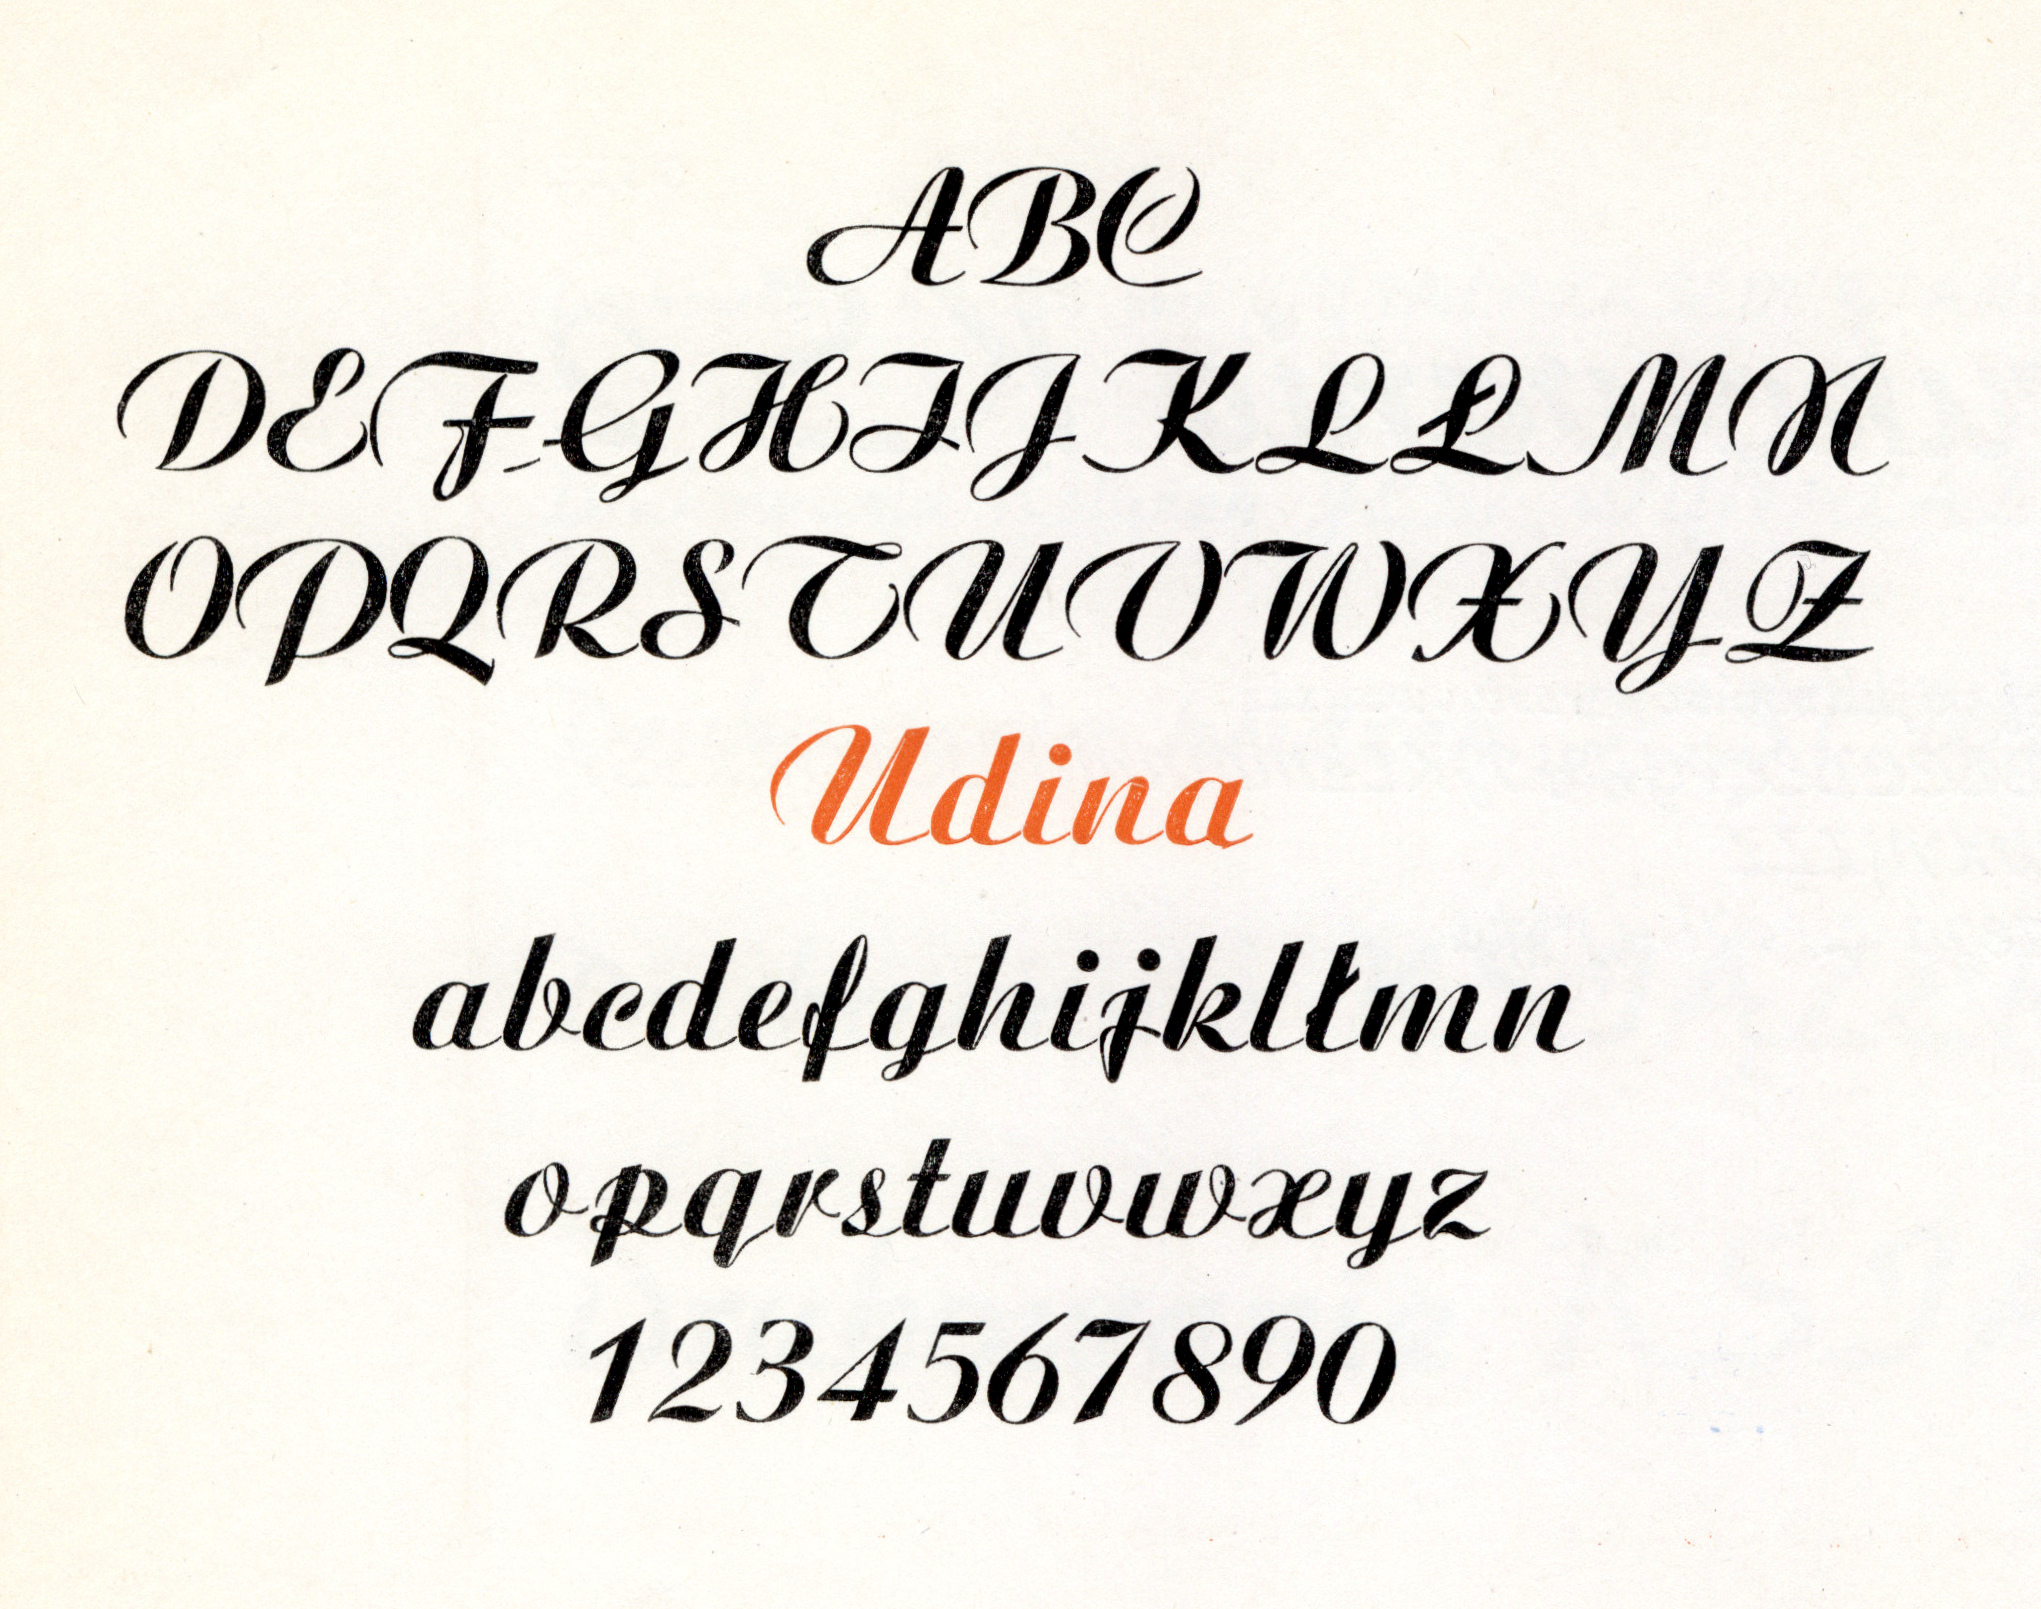 ABC
DEFGHIJKLŁMN
OPQRSTUVWXYZ
Udina
abcdefghijklłmn
opqrstuvwxyz
1234567890